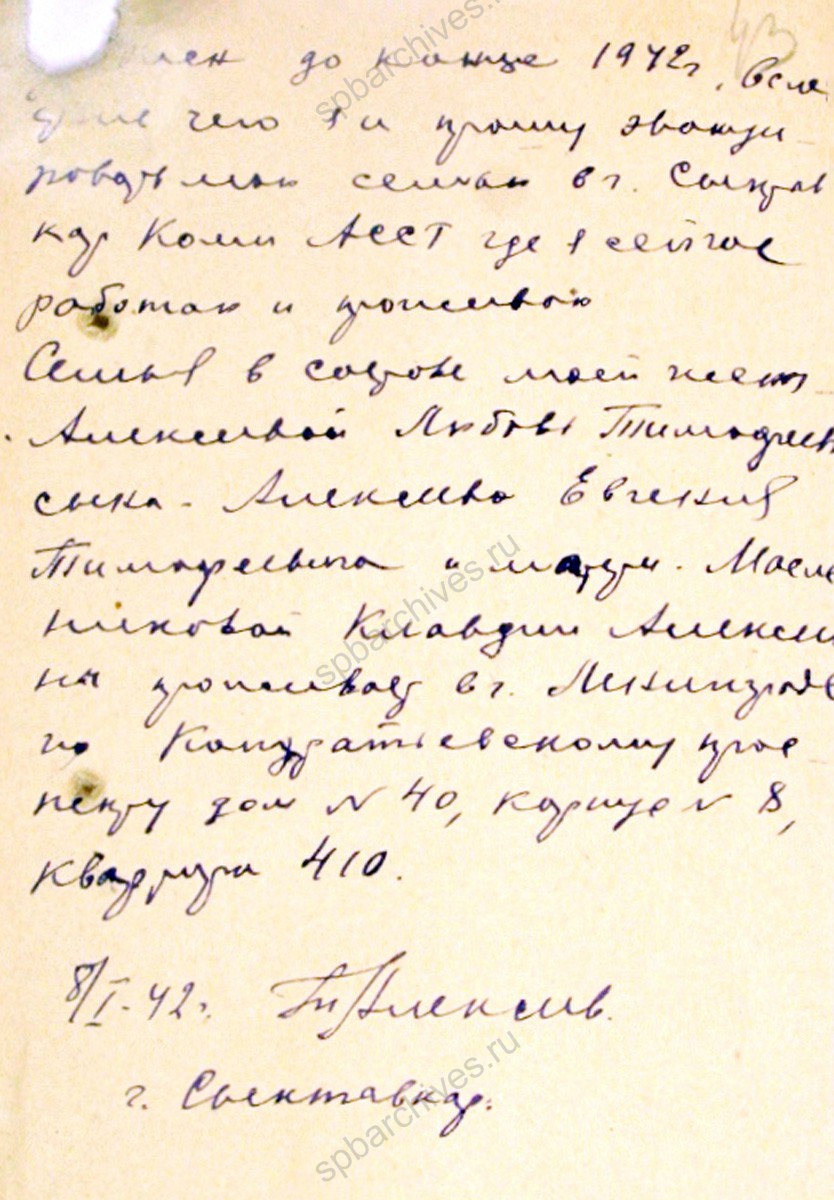 до конце 1942г, всле
чего я и прошу эвакуи-
ровать мою семью в г. Сыктыв
кар Коми АССТ где я сейчас
работаю и проживаю
Семья в составе моей жены
Алексеевой Любовь Тимофеев
сына - Алексеева Евгения
Тимофеевича и матери - Масле
никовой Клавдии Алексеев
ны проживает в г. Ленинграде
по Кондратьевскому прос
пекту дом N 40, корпус N 8,
квартира 410.
8/I-42г. Т Алексеев.
г. Сыктывкар.
43
spbarchives.ru
spbarchives.ru
spbarchives.ru